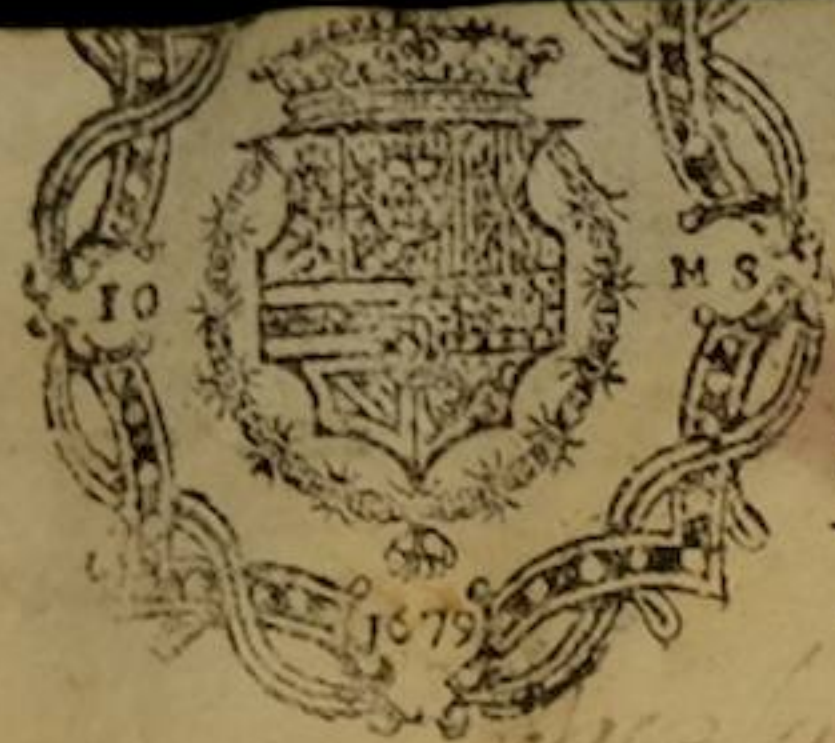 IO MS
1679